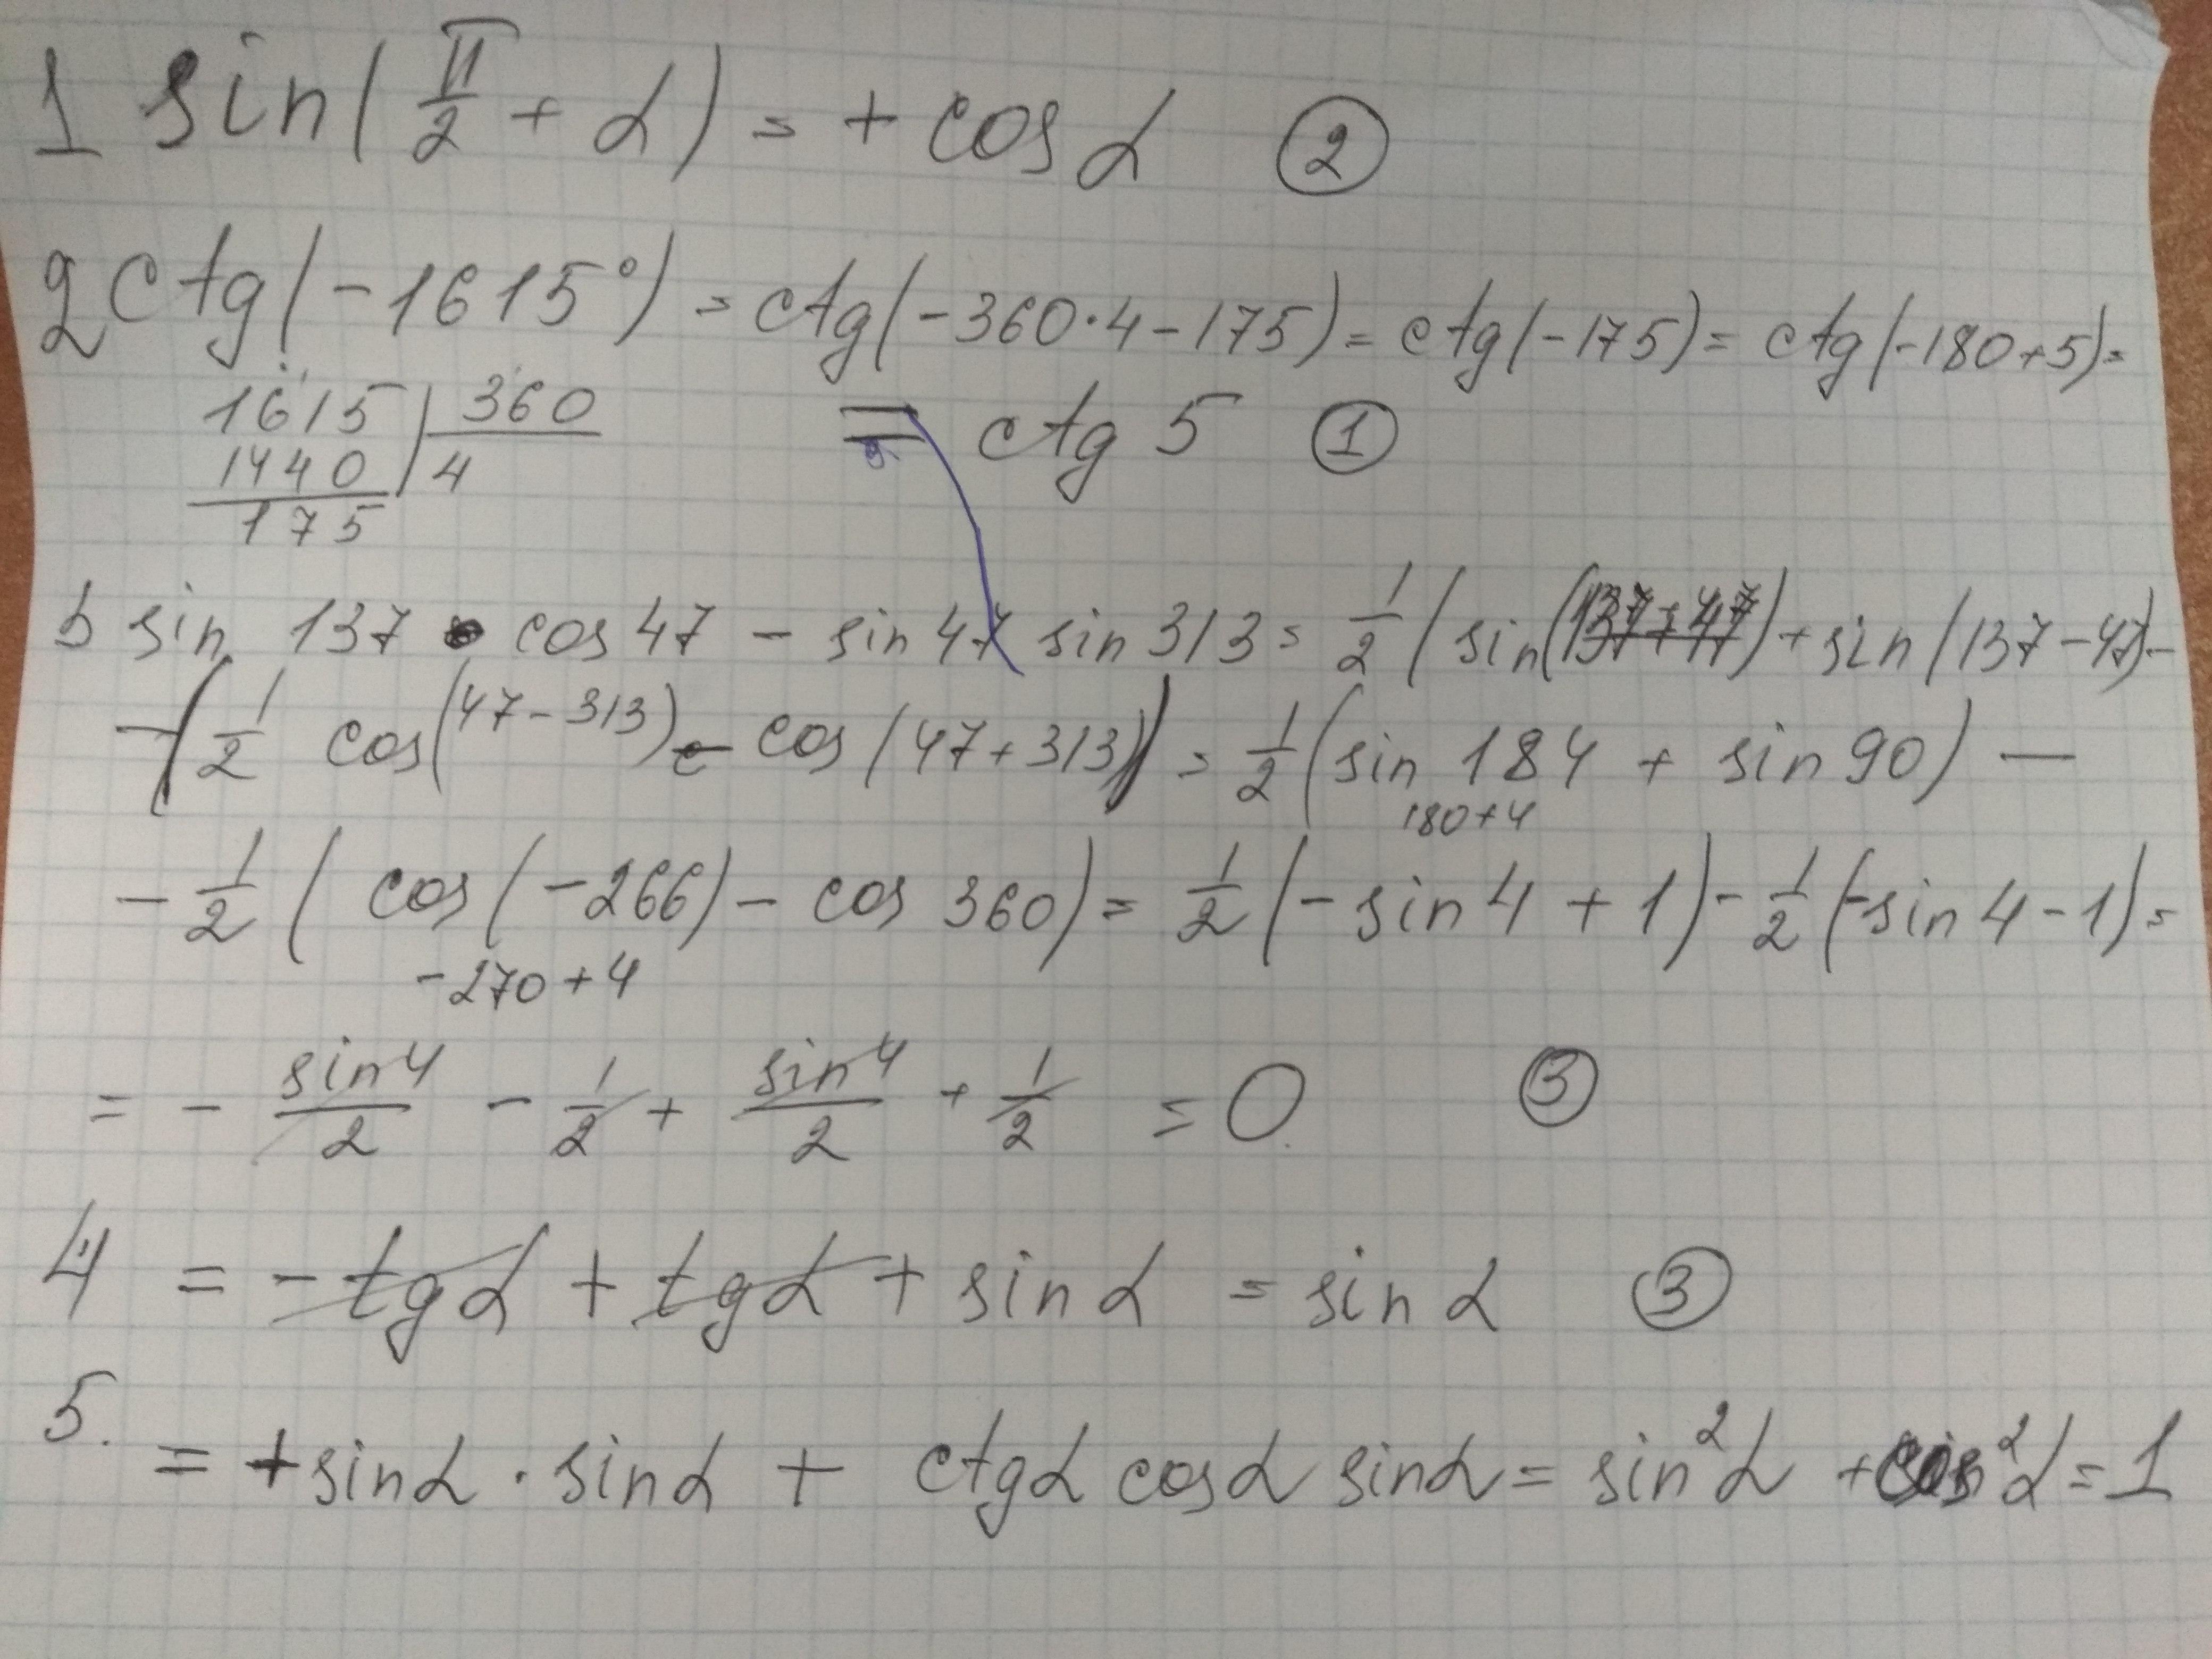 1 sin(π/2 + α) = + cos α ②
2 ctg(-1615°) = ctg(-360·4-175) = ctg(-175) = ctg(-180+5) =
= ctg 5 ①
1615 | 360
1440 | 4
175
3 sin 137 · cos 47 - sin 47 sin 313 = 1/2 (sin(137+47) + sin(137-47) -
- (1/2 cos(47-313) - cos(47+313)) = 1/2 (sin 184 + sin 90) -
180+4
- 1/2 (cos(-266) - cos 360) = 1/2 (-sin 4 + 1) - 1/2 (-sin 4 - 1) =
-270+4
= - sin4/2 - 1/2 + sin4/2 + 1/2 = 0 ③
4 = -tg α + tg α + sin α = sin α ③
5. = + sin α · sin α + ctg α cos α sin α = sin² α + cos² α = 1